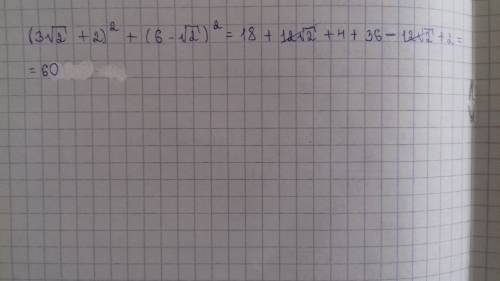 (3√2 + 2)² + (6 - √2)² = 18 + 12√2 + 4 + 36 - 12√2 + 2 =
= 60